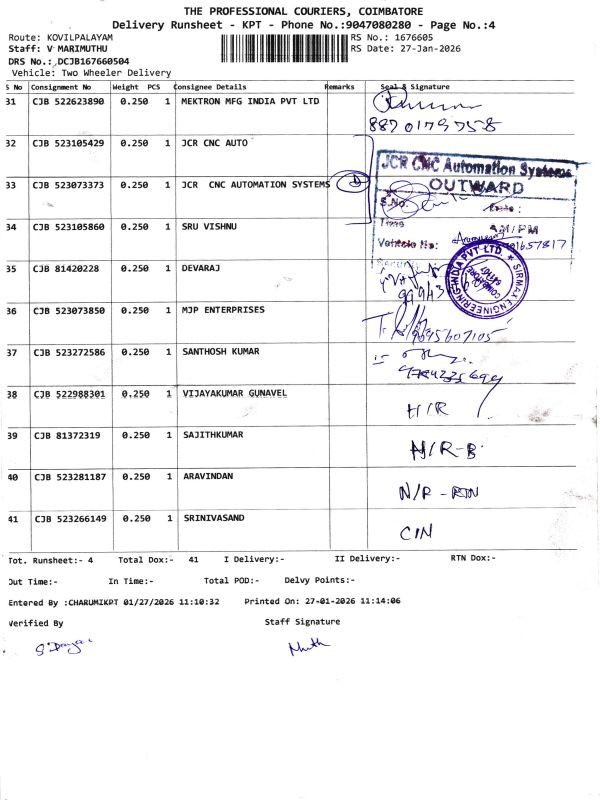 THE PROFESSIONAL COURIERS, COIMBATORE
Delivery Runsheet - KPT - Phone No.:9047080280 - Page No.:4
Route: KOVILPALAYAM RS No.: 1676605
Staff: V MARIMUTHU RS Date: 27-Jan-2026
DRS No.: DCJB167660504
Vehicle: Two Wheeler Delivery
S No Consignment No Weight PCS Consignee Details Remarks Seal & Signature
31 CJB 522623890 0.250 1 MEKTRON MFG INDIA PVT LTD
32 CJB 523105429 0.250 1 JCR CNC AUTO
JCR CNC Automation Systems
33 CJB 523073373 0.250 1 JCR CNC AUTOMATION SYSTEMS
OUTWARD
S.No. Date :
34 CJB 523105860 0.250 1 SRU VISHNU
Time AM/PM
Vehicle No:
Security
SIRMAX ENGINEERING INDIA PVT LTD.
35 CJB 81420228 0.250 1 DEVARAJ
36 CJB 523073850 0.250 1 MJP ENTERPRISES
37 CJB 523272586 0.250 1 SANTHOSH KUMAR
38 CJB 522988301 0.250 1 VIJAYAKUMAR GUNAVEL
39 CJB 81372319 0.250 1 SAJITHKUMAR
40 CJB 523281187 0.250 1 ARAVINDAN N/R - RTN
41 CJB 523266149 0.250 1 SRINIVASAND
Tot. Runsheet:- 4 Total Dox:- 41 I Delivery:- II Delivery:- RTN Dox:-
Out Time:- In Time:- Total POD:- Delvy Points:-
Entered By :CHARUMIKPT 01/27/2026 11:10:32 Printed On: 27-01-2026 11:14:06
Verified By Staff Signature